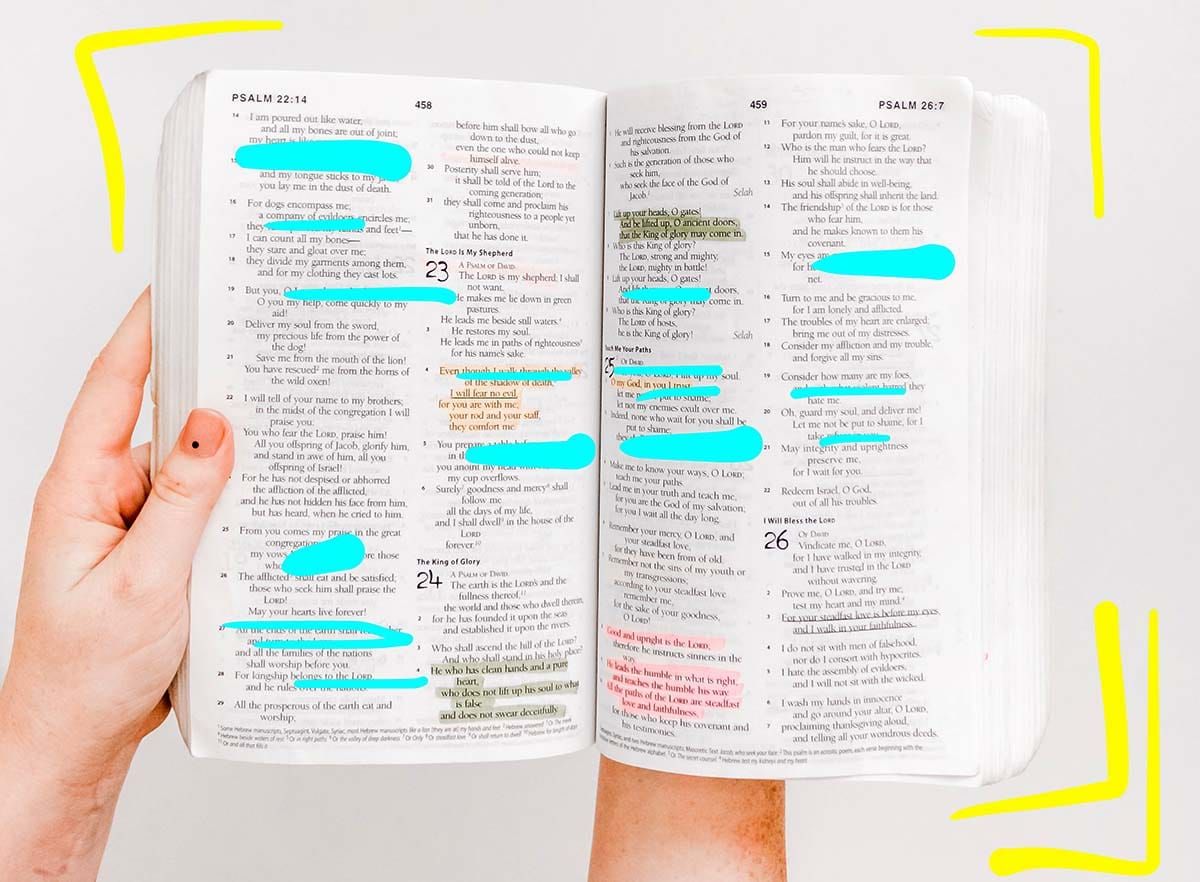 PSALM 22:14
458
14 I am poured out like water,
and all my bones are out of joint;
my heart is like
and my tongue sticks to my
you lay me in the dust of death.
16 For dogs encompass me;
a company of evildoers encircles me;
they and feet—
17 I can count all my bones—
they stare and gloat over me;
18 they divide my garments among them,
and for my clothing they cast lots.
19 But you, O
O you my help, come quickly to my
aid!
20 Deliver my soul from the sword,
my precious life from the power of
the dog!
21 Save me from the mouth of the lion!
You have rescued² me from the horns of
the wild oxen!
22 I will tell of your name to my brothers;
in the midst of the congregation I will
praise you:
You who fear the LORD, praise him!
All you offspring of Jacob, glorify him,
and stand in awe of him, all you
offspring of Israel!
For he has not despised or abhorred
the affliction of the afflicted,
and he has not hidden his face from him,
but has heard, when he cried to him.
25 From you comes my praise in the great
congregation
my vows those
who
26 The afflicted shall eat and be satisfied;
those who seek him shall praise the
LORD!
May your hearts live forever!
27 All the ends of the earth shall
and turn to the
and all the families of the nations
shall worship before you.
28 For kingship belongs to the LORD,
and he rules over the nations.
29 All the prosperous of the earth eat and
worship;
before him shall bow all who go
down to the dust,
even the one who could not keep
himself alive.
30 Posterity shall serve him;
it shall be told of the Lord to the
coming generation;
31 they shall come and proclaim his
righteousness to a people yet
unborn,
that he has done it.
The LORD Is My Shepherd
23 A PSALM OF DAVID.
The LORD is my shepherd; I shall
not want.
He makes me lie down in green
pastures.
He leads me beside still waters.⁴
3 He restores my soul.
He leads me in paths of righteousness⁵
for his name's sake.
4 Even though I walk through the valley
of the shadow of death,
I will fear no evil,
for you are with me;
your rod and your staff,
they comfort me.
5 You prepare a table
in the
you anoint my head
my cup overflows.
6 Surely⁷ goodness and mercy⁸ shall
follow me
all the days of my life,
and I shall dwell⁹ in the house of the
LORD
forever.¹⁰
The King of Glory
24 A PSALM OF DAVID.
The earth is the LORD's and the
fullness thereof,¹¹
the world and those who dwell therein,
2 for he has founded it upon the seas
and established it upon the rivers.
3 Who shall ascend the hill of the LORD?
And who shall stand in his holy place?
4 He who has clean hands and a pure
heart,
who does not lift up his soul to what
is false
and does not swear deceitfully.
459
PSALM 26:7
He will receive blessing from the LORD
and righteousness from the God of
his salvation.
Such is the generation of those who
seek him,
who seek the face of the God of
Jacob. Selah
Lift up your heads, O gates!
And be lifted up, O ancient doors,
that the King of glory may come in.
Who is this King of glory?
The LORD, strong and mighty,
the LORD, mighty in battle!
Lift up your heads, O gates!
And doors,
that the King of glory may come in.
Who is this King of glory?
The LORD of hosts,
he is the King of glory! Selah
Teach Me Your Paths
25 OF DAVID.
soul.
O my God, in you I trust
let me put to shame;
let not my enemies exult over me.
Indeed, none who wait for you shall be
put to shame;
they
Make me to know your ways, O LORD;
teach me your paths.
Lead me in your truth and teach me,
for you are the God of my salvation;
for you I wait all the day long.
Remember your mercy, O LORD, and
your steadfast love,
for they have been from of old.
Remember not the sins of my youth or
my transgressions;
according to your steadfast love
remember me,
for the sake of your goodness,
O LORD!
Good and upright is the LORD;
therefore he instructs sinners in the
way.
He leads the humble in what is right,
and teaches the humble his way.
All the paths of the LORD are steadfast
love and faithfulness,
for those who keep his covenant and
his testimonies.
11 For your name's sake, O LORD,
pardon my guilt, for it is great.
12 Who is the man who fears the LORD?
Him will he instruct in the way that
he should choose.
13 His soul shall abide in well-being,
and his offspring shall inherit the land.
14 The friendship¹ of the LORD is for those
who fear him,
and he makes known to them his
covenant.
15 My eyes are
for he
net.
16 Turn to me and be gracious to me,
for I am lonely and afflicted.
17 The troubles of my heart are enlarged;
bring me out of my distresses.
18 Consider my affliction and my trouble,
and forgive all my sins.
19 Consider how many are my foes,
hatred they
hate me.
20 Oh, guard my soul, and deliver me!
Let me not be put to shame, for I
take
21 May integrity and uprightness
preserve me,
for I wait for you.
22 Redeem Israel, O God,
out of all his troubles.
I Will Bless the LORD
26 OF DAVID.
Vindicate me, O LORD,
for I have walked in my integrity,
and I have trusted in the LORD
without wavering.
2 Prove me, O LORD, and try me;
test my heart and my mind.⁴
3 For your steadfast love is before my eyes,
and I walk in your faithfulness.
4 I do not sit with men of falsehood,
nor do I consort with hypocrites.
5 I hate the assembly of evildoers,
and I will not sit with the wicked.
6 I wash my hands in innocence
and go around your altar, O LORD,
7 proclaiming thanksgiving aloud,
and telling all your wondrous deeds.